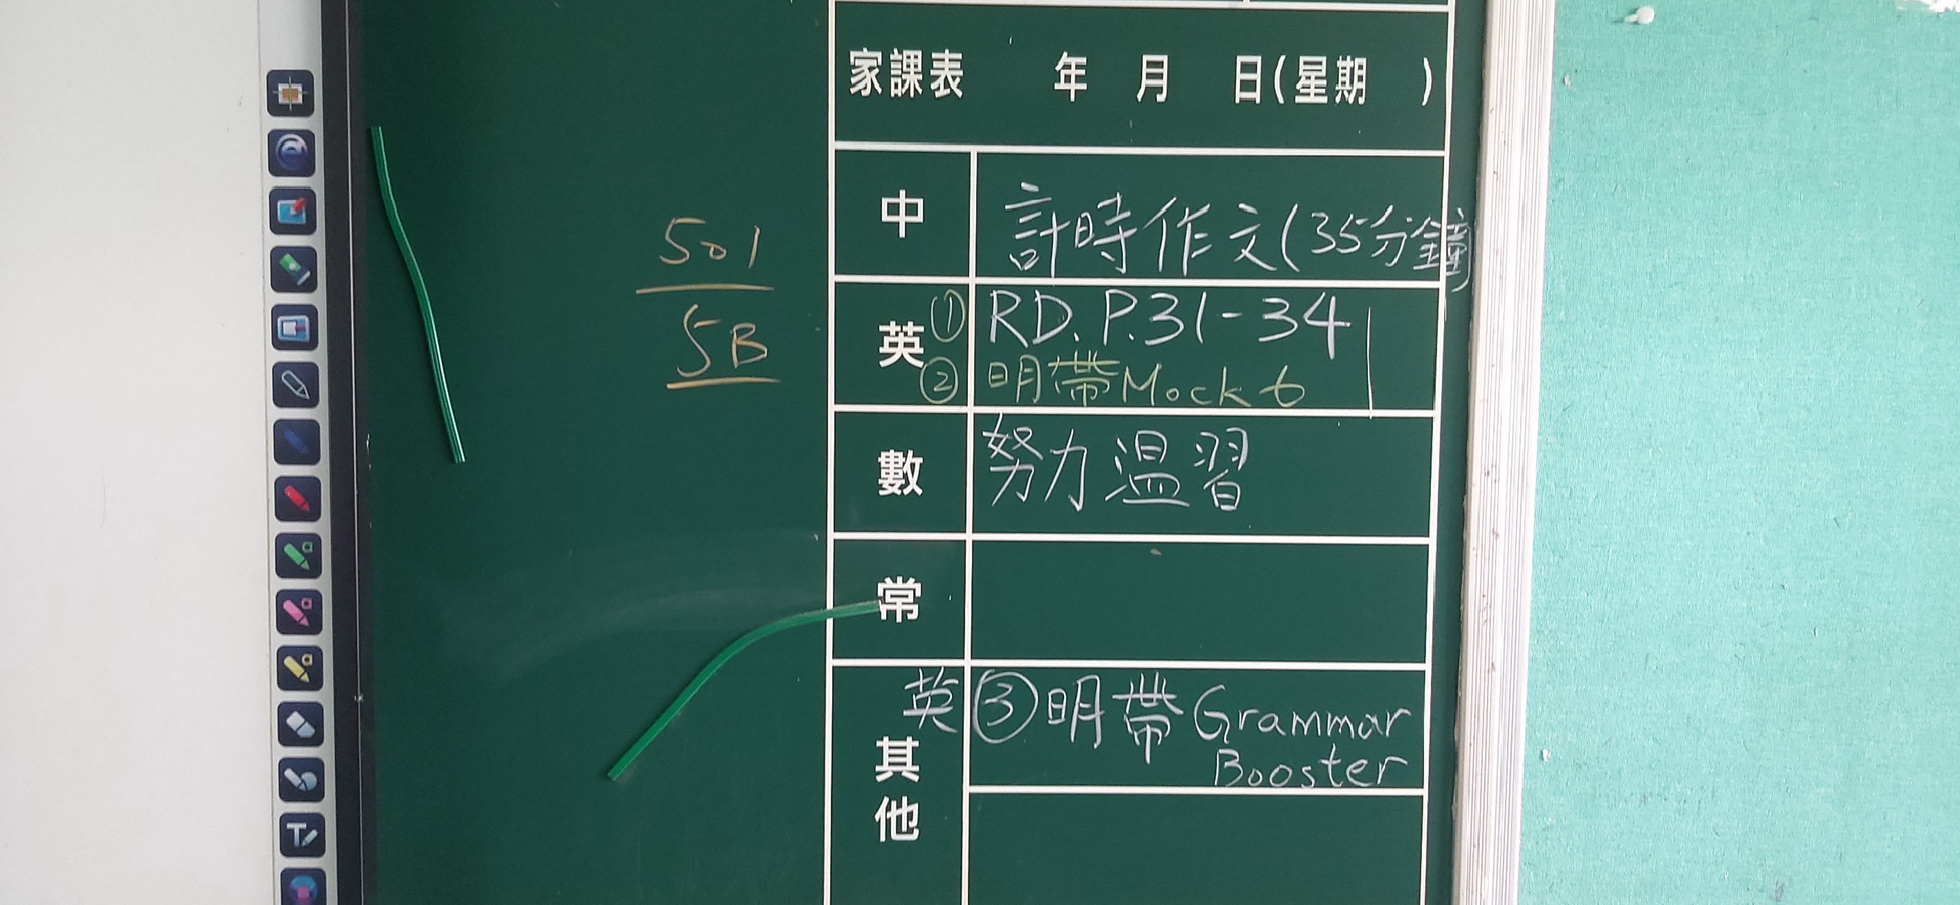 家課表 年 月 日(星期 )
501
5B
中 計時作文(35分鐘)
英 ① RD. P.31-34
② 明帶Mock 6
數 努力溫習
常
其他
英 ③ 明帶 Grammar
Booster